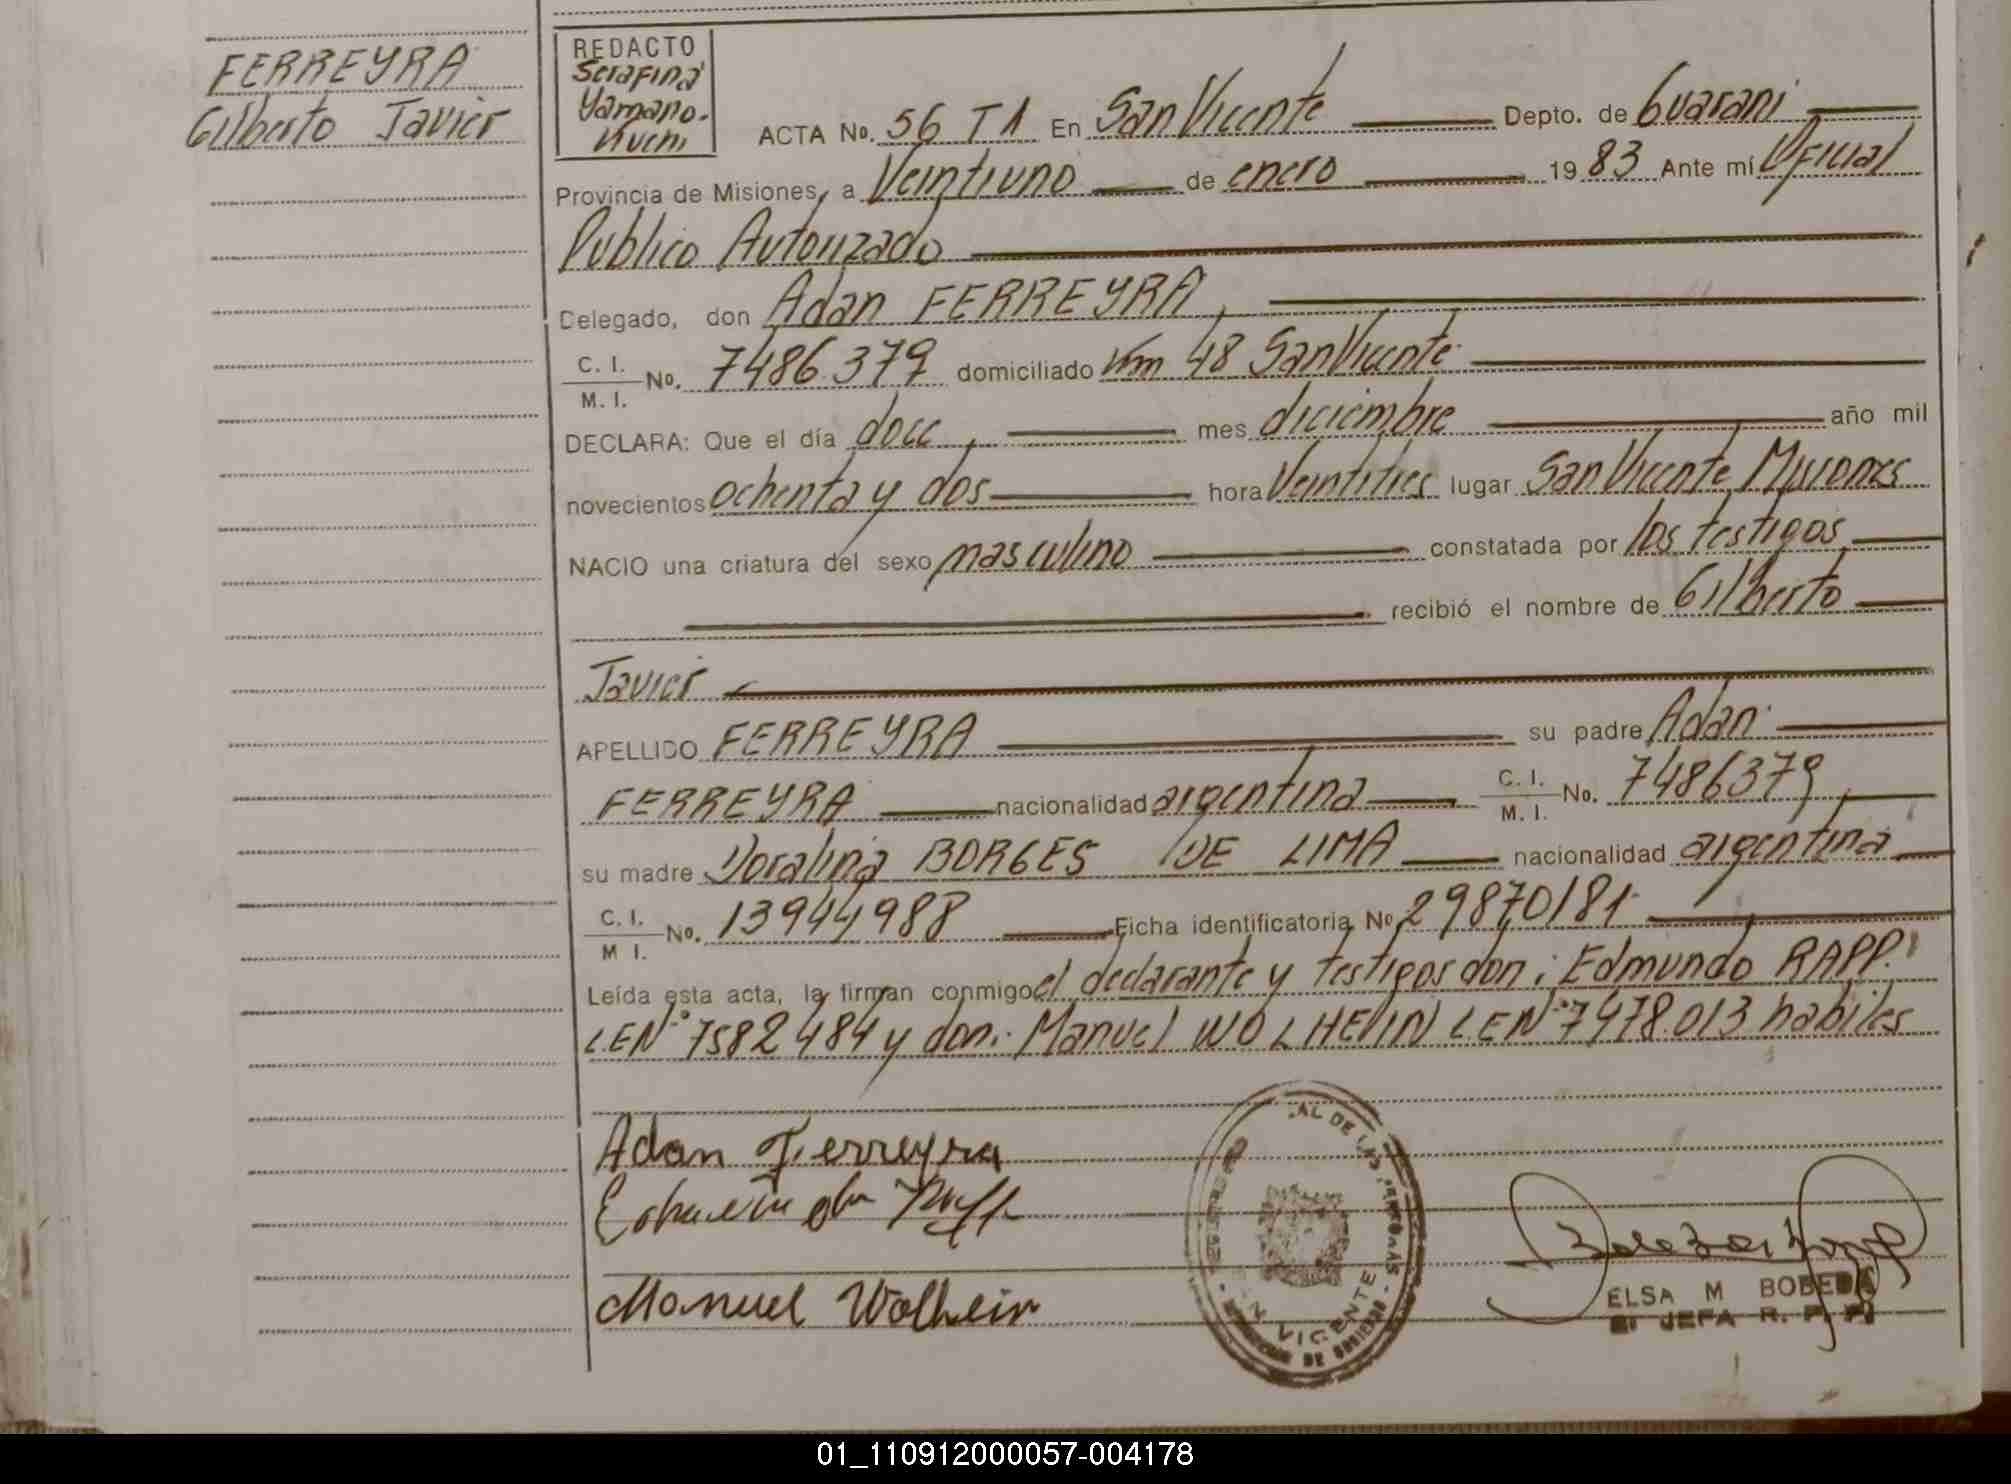 FERREYRA
Gilberto Javier
REDACTO
Serafina
Yamano-
ACTA No. 56 T1 En San Vicente Depto. de Guaraní
Provincia de Misiones, a Veintiuno de enero 1983 Ante mí Oficial
Público Autorizado
Delegado, don Adan FERREYRA,
C. I.
M. I.
No. 7486.379 domiciliado Km 48 San Vicente
DECLARA: Que el día doce, mes diciembre año mil
novecientos ochenta y dos hora Veintitres lugar San Vicente, Misiones
NACIO una criatura del sexo masculino constatada por los testigos
recibió el nombre de Gilberto
Javier
APELLIDO FERREYRA su padre Adan
FERREYRA nacionalidad argentina C. I.
M. I.
No. 7486379
su madre Doralina BORGES DE LIMA nacionalidad argentina
C. I.
M I.
No. 13944988 Ficha identificatoria No 29870181
Leída esta acta, la firman conmigo el declarante y testigos don: Edmundo RAPP.
L.E.N° 7582484 y don: Manuel WOLHEIN L.E.N° 7478.013 habiles
Adan Ferreyra
Manuel Wolhein
VICENTE
ELSA M BOBEDA
JEFA R. P. P.
01_110912000057-004178